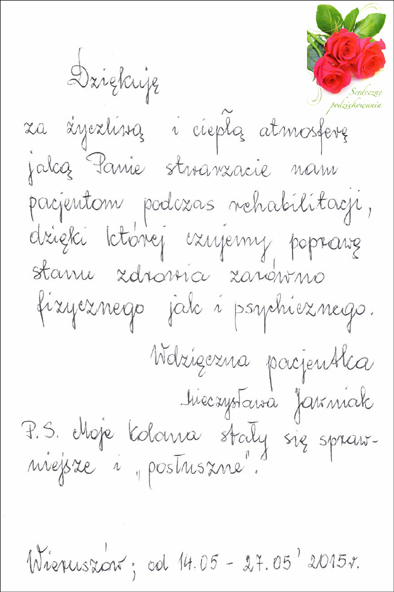 Serdeczne
podziękowania
Dziękuję
za życzliwą i ciepłą atmosferę
jaką Panie stwarzacie nam
pacjentom podczas rehabilitacji,
dzięki której czujemy poprawę
stanu zdrowia zarówno
fizycznego jak i psychicznego.
Wdzięczna pacjentka
Mieczysława Jawniak
P.S. Moje kolana stały się spraw-
niejsze i „posłuszne".
Wieruszów; od 14.05 - 27.05' 2015r.